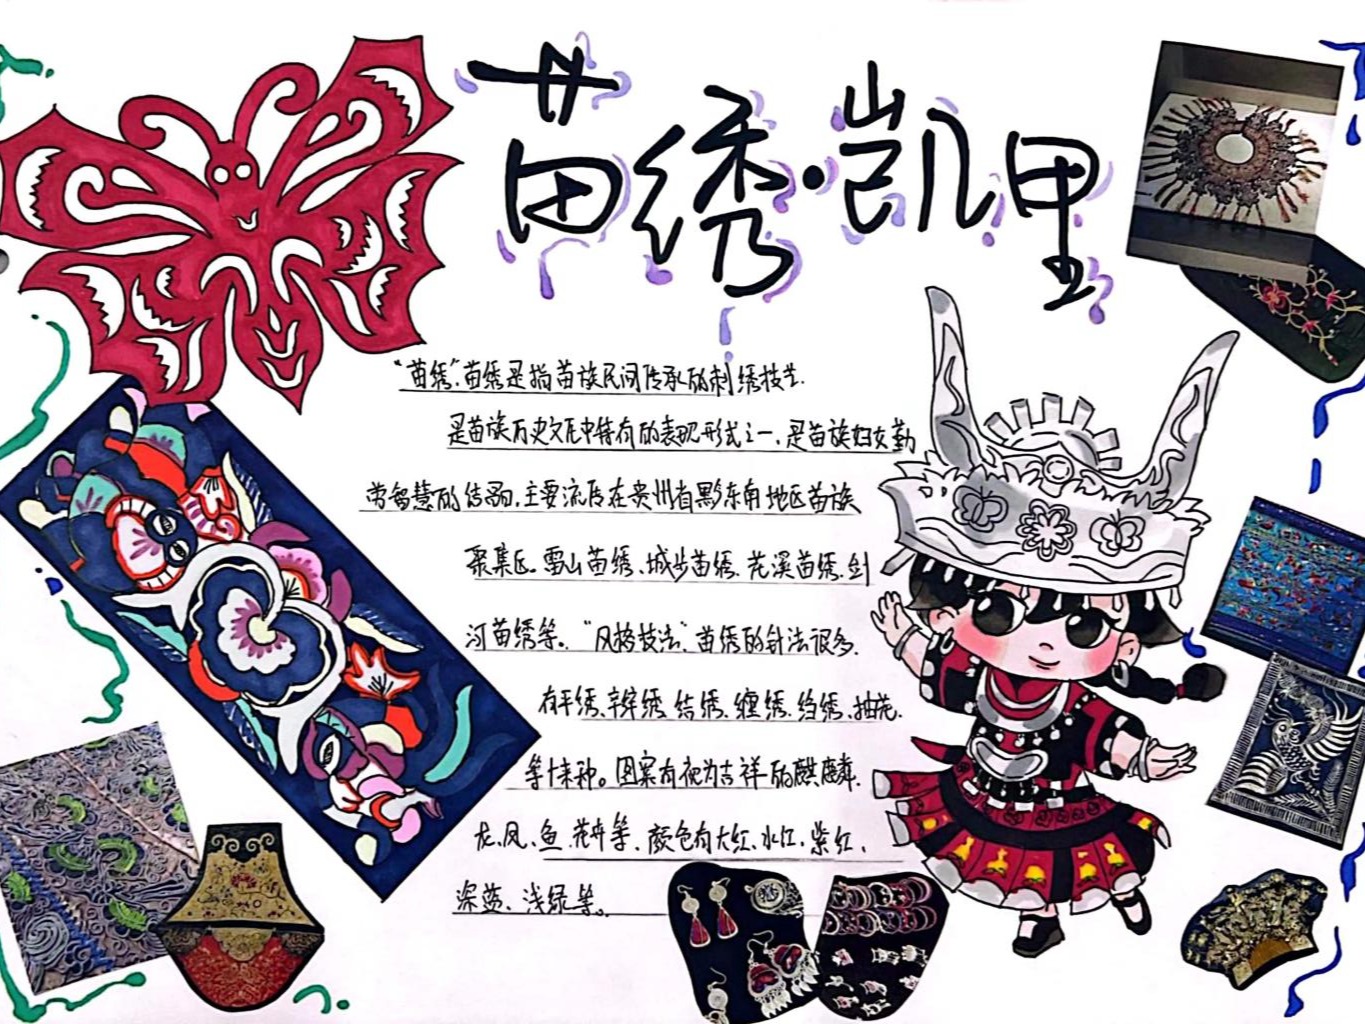 苗绣·凯里
“苗绣”苗绣是指苗族民间传承的刺绣技艺.
是苗族历史文化中特有的表现形式之一,是苗族妇女勤
劳智慧的结晶.主要流传在贵州省黔东南地区苗族
聚集区.雷山苗绣、城步苗绣.花溪苗绣.剑
河苗绣等。“风格技法”苗绣的针法很多.
有平绣、辫绣.结绣.缠绣.绉绣.抽花.
等十来种。图案有视为吉祥的麒麟.
龙、凤、鱼、花卉等、颜色有大红、水红、紫红、
深蓝、浅绿等。